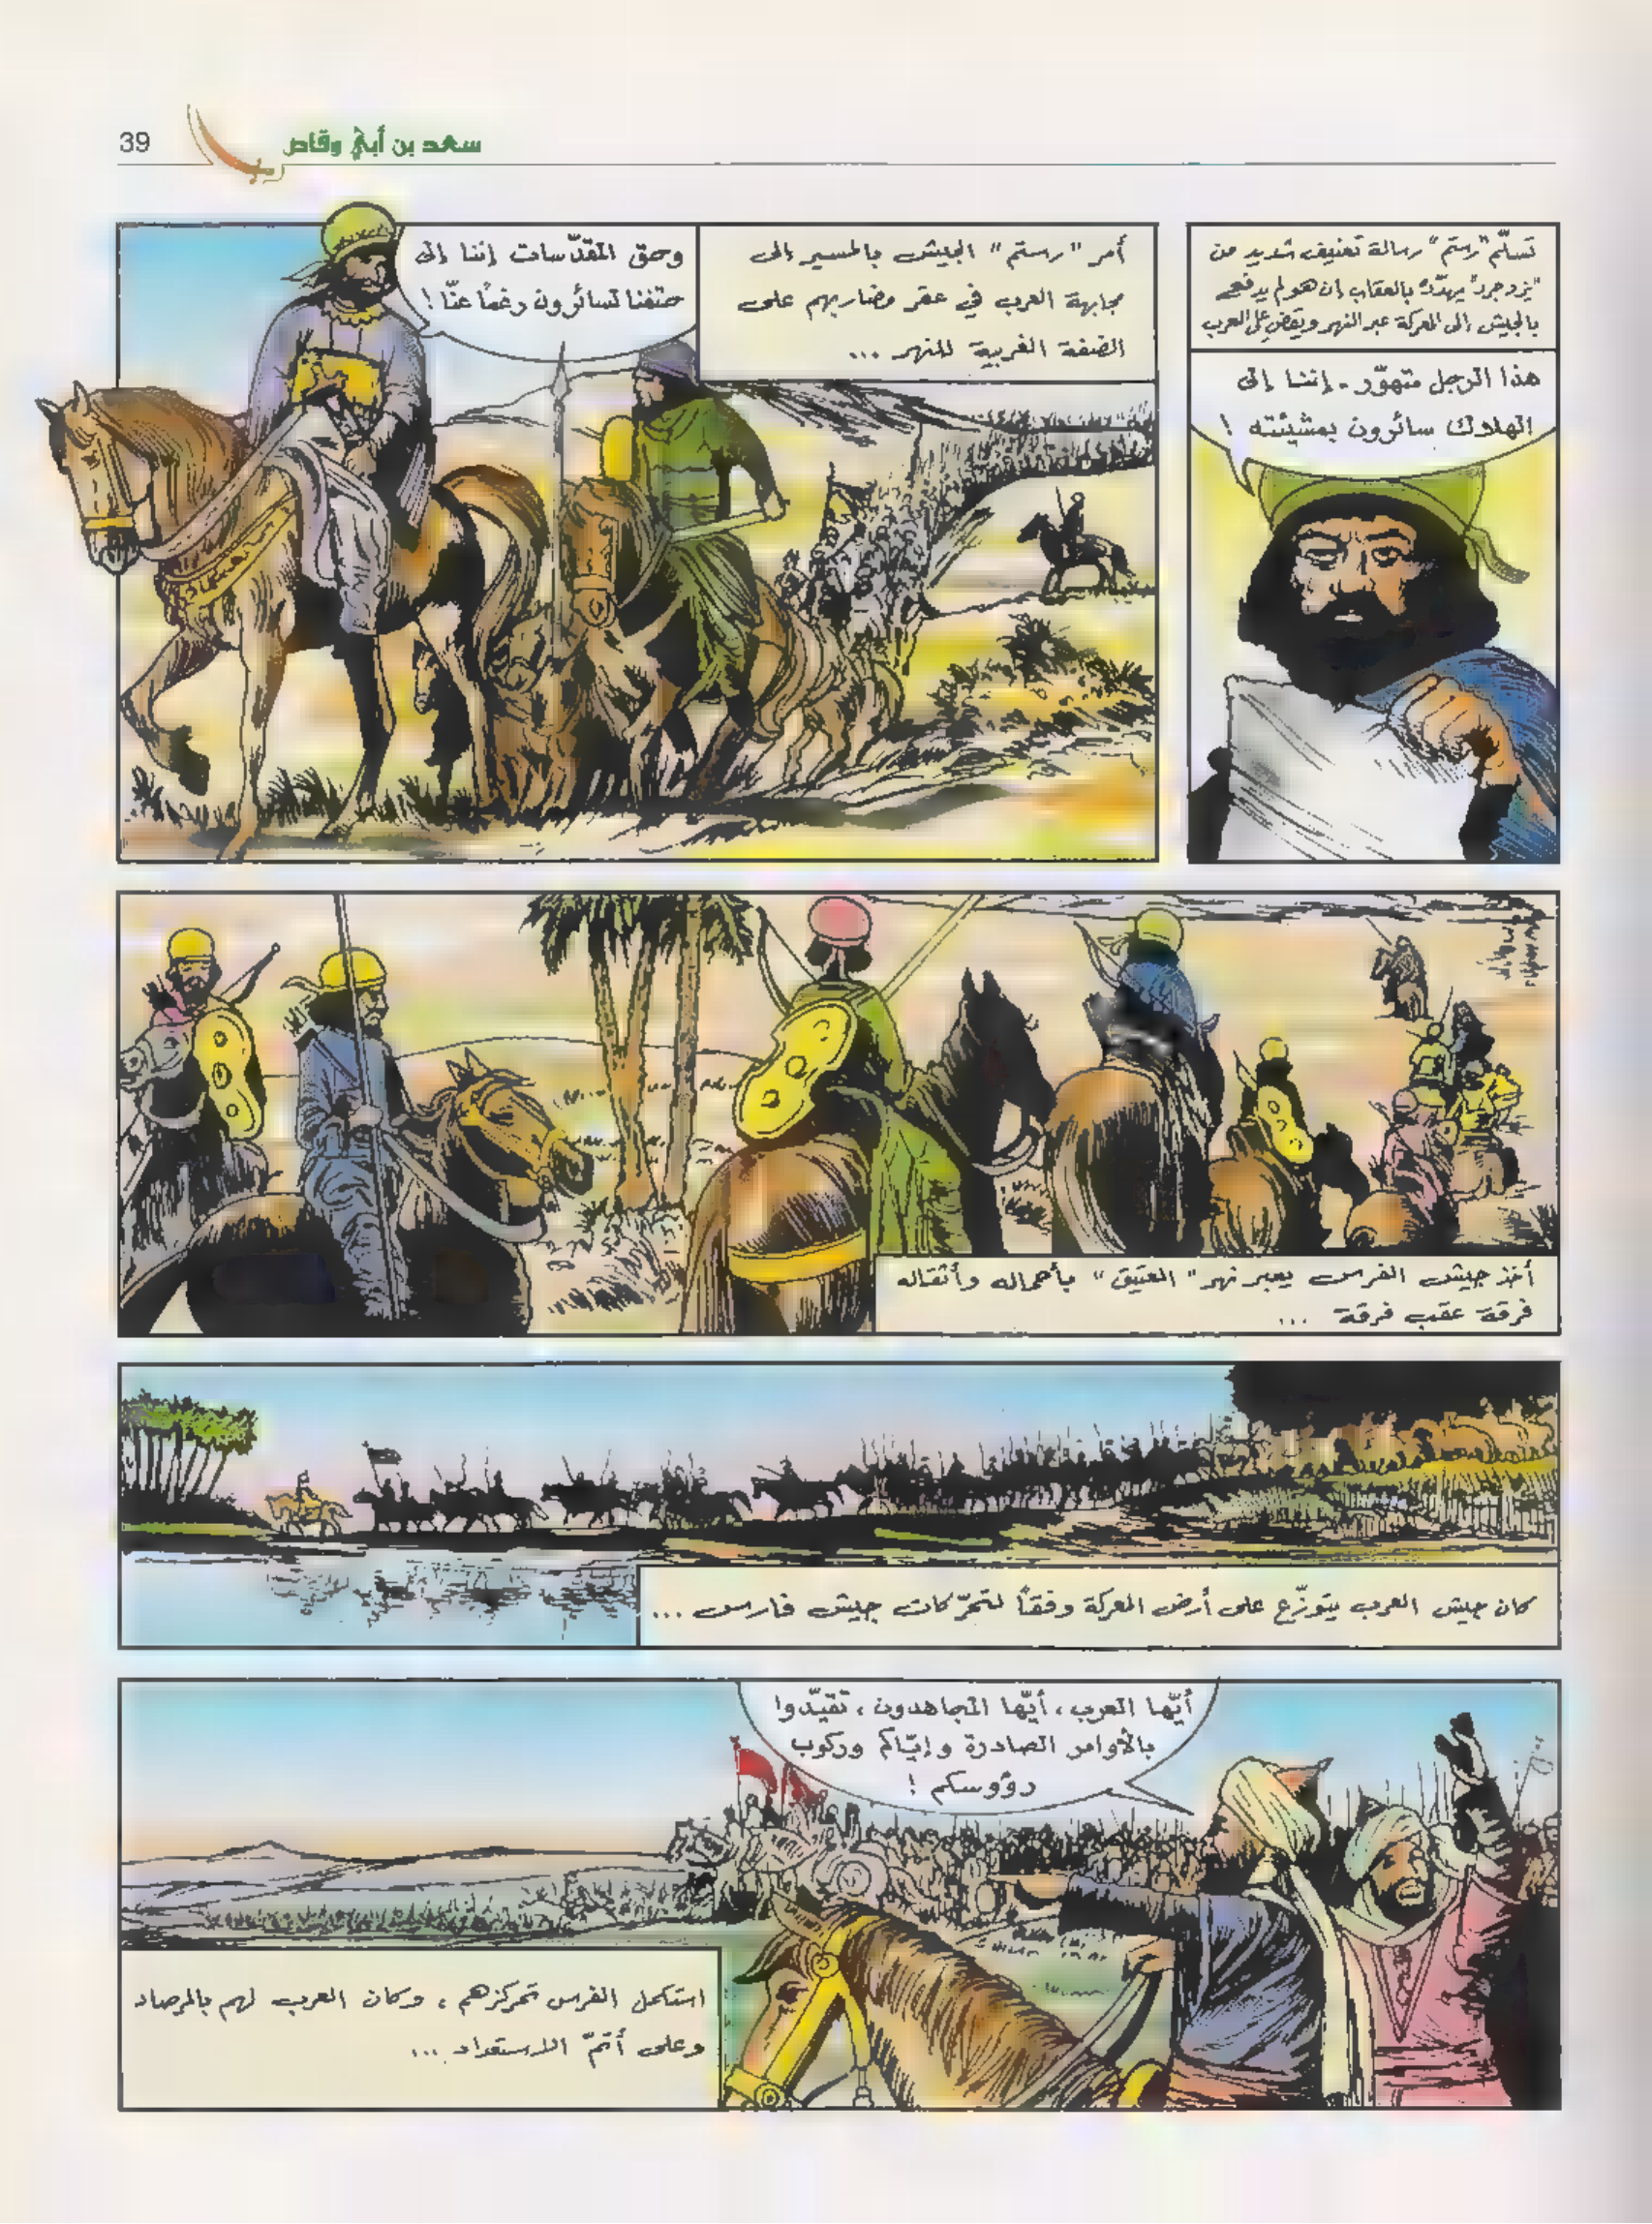 39
سعد بن أبي وقاص
تسلّم "رستم" رسالة تعنيف شديد من
"يزدجرد" يهدّده بالعقاب إن هو لم يدفع
بالجيش إلى المعركة عبر النهر ويقضِ على العرب
هذا الرجل متهوّر - إننا إلى
الهلاك سائرون بمشيئته !
أمر "رستم" الجيش بالمسير إلى
مجابهة العرب في عقر مضاربهم على
الضفة الغربية للنهر ...
وحق المقدّسات إننا إلى
حتفنا لسائرون رغماً عنّا !
أخذ جيش الفرس يعبر نهر "العتيق" بأحماله وأثقاله
فرقة عقب فرقة ...
كان جيش العرب يتوزّع على أرض المعركة وفقاً لتحرّكات جيش فارس ...
أيّها العرب ، أيّها المجاهدون ، تقيّدوا
بالأوامر الصادرة وإيّاكم وركوب
رؤوسكم !
استكمل الفرس تمركزهم ، وكان العرب لهم بالمرصاد
وعلى أتمّ الاستعداد ...